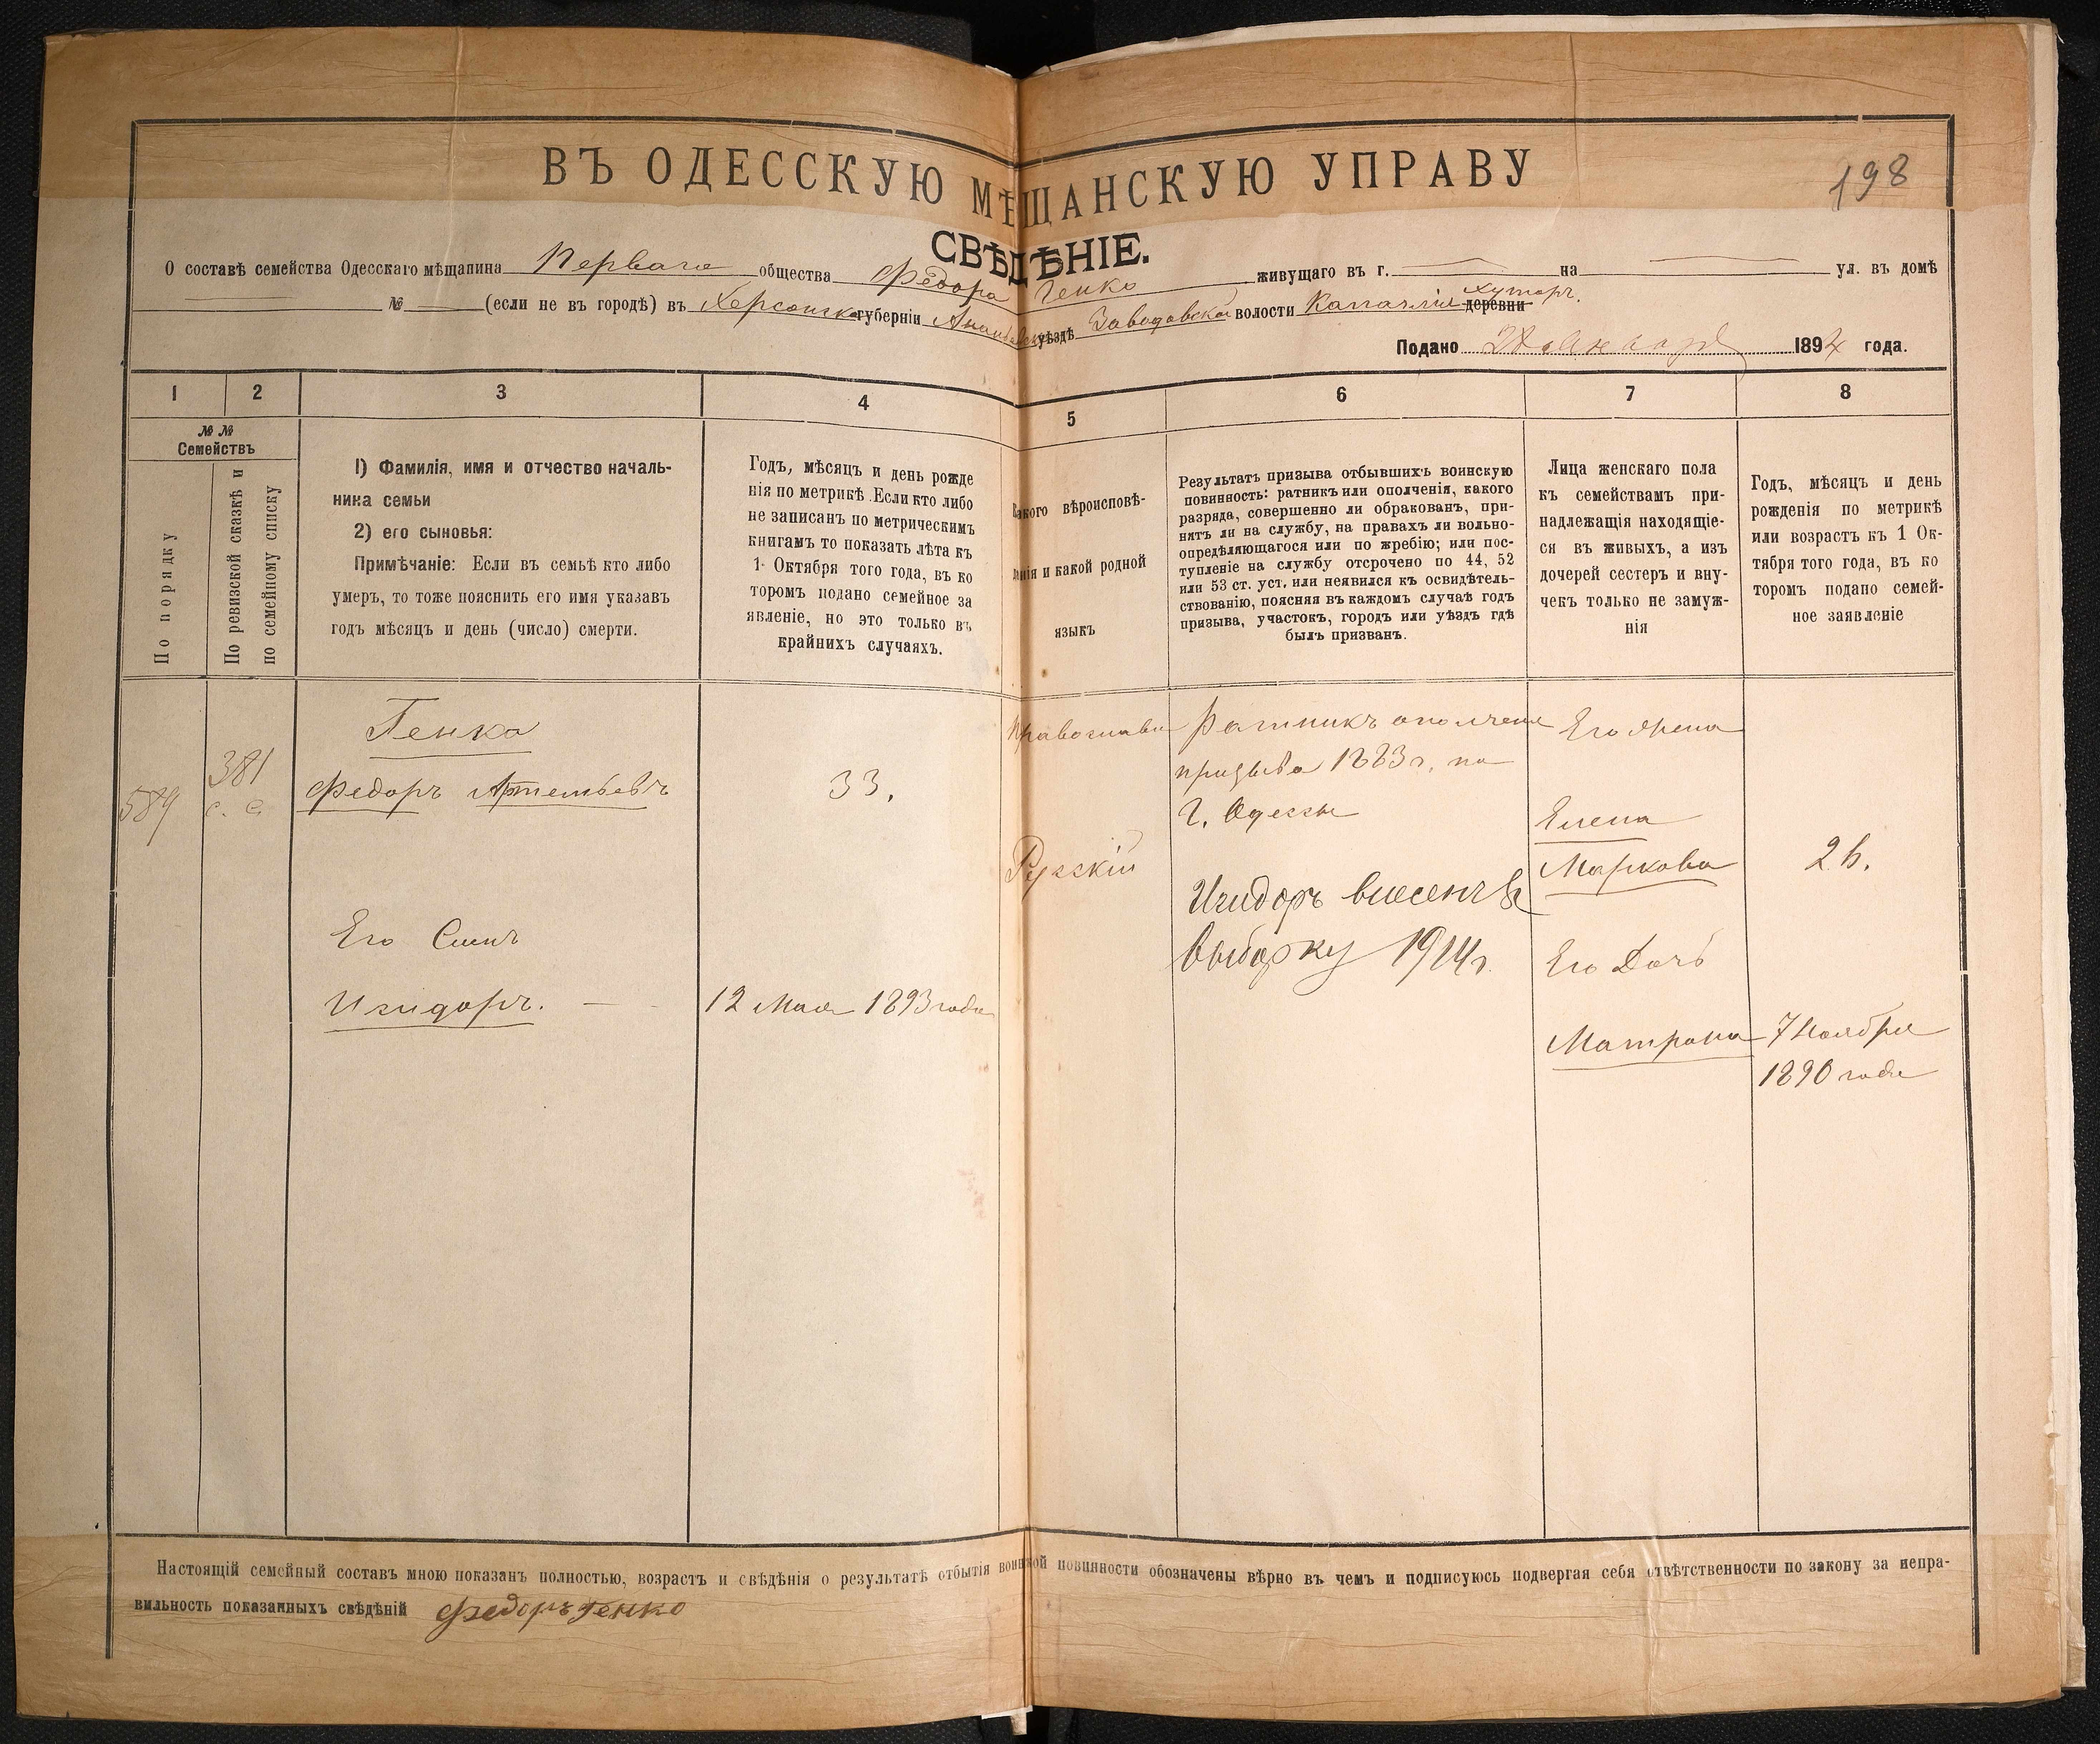 ВЪ ОДЕССКУЮ МѢЩАНСКУЮ УПРАВУ
198
СВѢДѢНІЕ.
О составѣ семейства Одесскаго мѣщанина Перваго общества Федора Генко живущаго въ г. на ул. въ домѣ
№ (если не въ городѣ) въ Херсонской губерніи уѣздѣ Заводовской волости деревни Хуторъ.
Подано Января 1894 года.
1 2 3 4 5 6 7 8
№ №
Семействъ
По порядку
По ревизской сказкѣ и
по семейному списку
1) Фамилія, имя и отчество началь-
ника семьи
2) его сыновья:
Примѣчаніе: Если въ семьѣ кто либо
умеръ, то тоже пояснить его имя указавъ
годъ мѣсяцъ и день (число) смерти.
Годъ, мѣсяцъ и день рожде
нія по метрикѣ. Если кто либо
не записанъ по метрическимъ
книгамъ то показать лѣта къ
1 Октября того года, въ ко
торомъ подано семейное за
явленіе, но это только въ
крайнихъ случаяхъ.
Какого вѣроисповѣ-
данія и какой родной
языкъ
Результатъ призыва отбывшихъ воинскую
повинность: ратникъ или ополченія, какого
разряда, совершенно ли обракованъ, при-
нятъ ли на службу, на правахъ ли вольно-
опредѣляющагося или по жребію; или пос-
тупленіе на службу отсрочено по 44, 52
или 53 ст. уст. или неявился къ освидѣтель-
ствованію, поясняя въ каждомъ случаѣ годъ
призыва, участокъ, городъ или уѣздъ гдѣ
былъ призванъ.
Лица женскаго пола
къ семействамъ при-
надлежащія находящіе-
ся въ живыхъ, а изъ
дочерей сестеръ и вну-
чекъ только не замуж-
нія
Годъ, мѣсяцъ и день
рожденія по метрикѣ
или возрастъ къ 1 Ок-
тября того года, въ ко
торомъ подано семей-
ное заявленіе
589
381
с. с.
Генко
Федоръ Артемьевъ
33.
Его Сынъ
Исидоръ.
12 Мая 1893 года
Православн
Русскій
Ратникъ ополченія
призыва 1883 г. по
г. Одессы
Исидоръ внесенъ въ
выборку 1914 г.
Его Жена
Елена
Маркова
Его Дочь
Матрона
7 Ноября
1890 года
Настоящій семейный составъ мною показанъ полностью, возрастъ и свѣдѣнія о результатѣ отбытія воинской повинности обозначены вѣрно въ чемъ и подписуюсь подвергая себя отвѣтственности по закону за непра-
вильность показанныхъ свѣдѣній Федоръ Генко